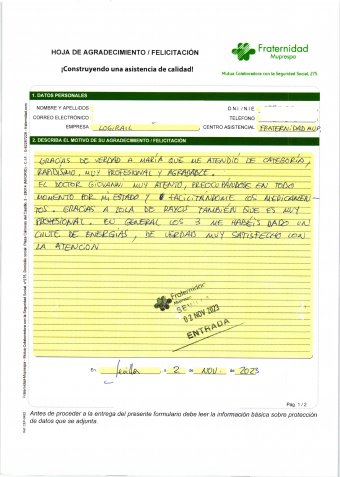 HOJA DE AGRADECIMIENTO / FELICITACIÓN
Fraternidad
Muprespa
¡Construyendo una asistencia de calidad!
Mutua Colaboradora con la Seguridad Social, 275
1. DATOS PERSONALES
NOMBRE Y APELLIDOS
D.N.I / N.I.E
CORREO ELECTRÓNICO
TELÉFONO
EMPRESA LOGIRAIL
CENTRO ASISTENCIAL FRATERNIDAD MUP,
2. DESCRIBA EL MOTIVO DE SU AGRADECIMIENTO / FELICITACIÓN
GRACIAS DE VERDAD A MARIA QUE ME ATENDIO DE CATEGORIA,
RAPIDISIMO, MUY PROFESIONAL Y AGRADABLE.
EL DOCTOR GIOVANNI MUY ATENTO, PREOCUPANDOSE EN TODO
MOMENTO POR MI ESTADO Y FACILITANDOME LOS MEDICAMEN-
TOS. GRACIAS A LOLA DE RAYOS TAMBIÉN QUE ES MUY
PROFESIONAL. EN GENERAL LOS 3 ME HABÉIS DADO UN
CHUTE DE ENERGIAS, DE VERDAD MUY SATISFECHO CON
LA ATENCION
Fraternidad
Muprespa
SEVILLA
02 NOV 2023
ENTRADA
En Sevilla, a 2 de NOV. de 2023
Pág. 1 / 2
Antes de proceder a la entrega del presente formulario debe leer la información básica sobre protección
de datos que se adjunta.